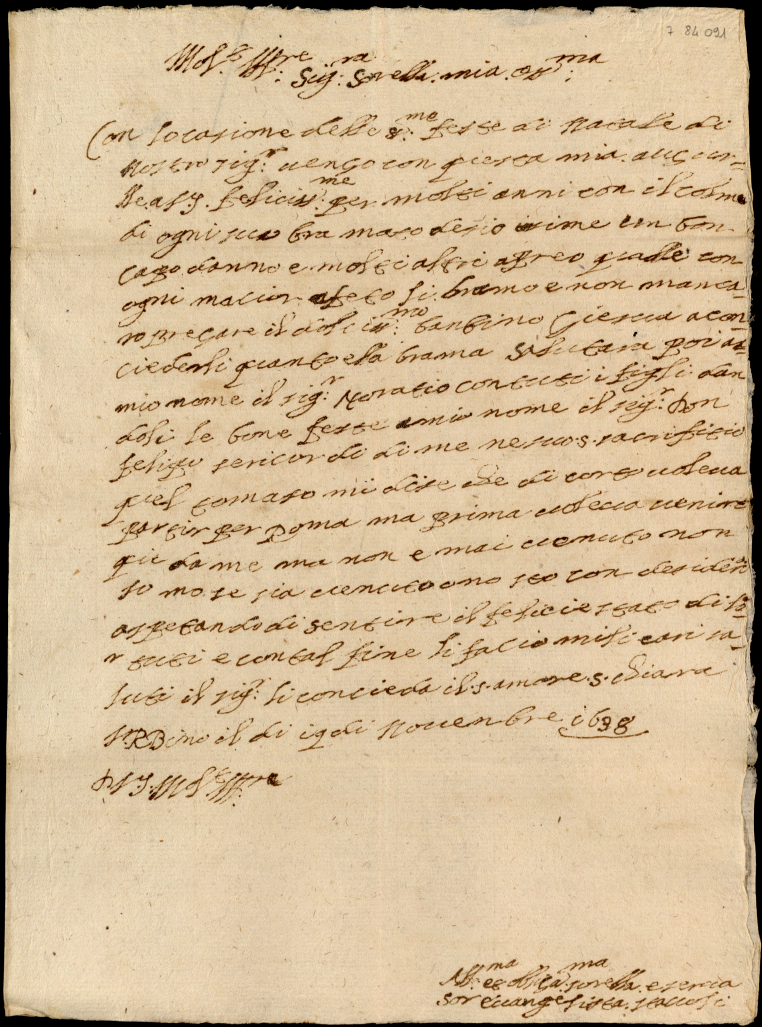 7 84 021
Molto Ill:re Sig:ra Sorella mia oss:ma
Con locasione delle s:me feste di Natale di
Nostro sig:r vengo con questa mia augurar=
le a S.V. feliciss:me per molti anni con il colmo
di ogni suo bramato desio insime un bon
capo danno e molti altri apreso qualle con
ogni macior afeto li bramo e non manca=
ro pregare il dolciss:mo bambino Giesu a con=
ciederli quanto ela brama Salutara poi a
mio nome il sig:r Horatio con tuti i figli dan
doli le bone feste a mio nome il sig:r Don
felipo sericordi di me ne suo s. sacrifitio
quel tomaso mi dise che di corto voleva
partir per Roma ma prima voleva venire
qui da me ma non e mai venuto non
so mo se sia venuto o no sto con desiderio
aspetando di sentire il felicie stato di
tuti e con tal fine li facio mili cari sa=
luti il sig:r li concieda il s. amore s. chiara
Urbino il di 19 di Novenbre 1638
D V.S. Molto Ill:re
Aff:ma et obliga:ma sorella e serva
Sor Evangelista Staccoli